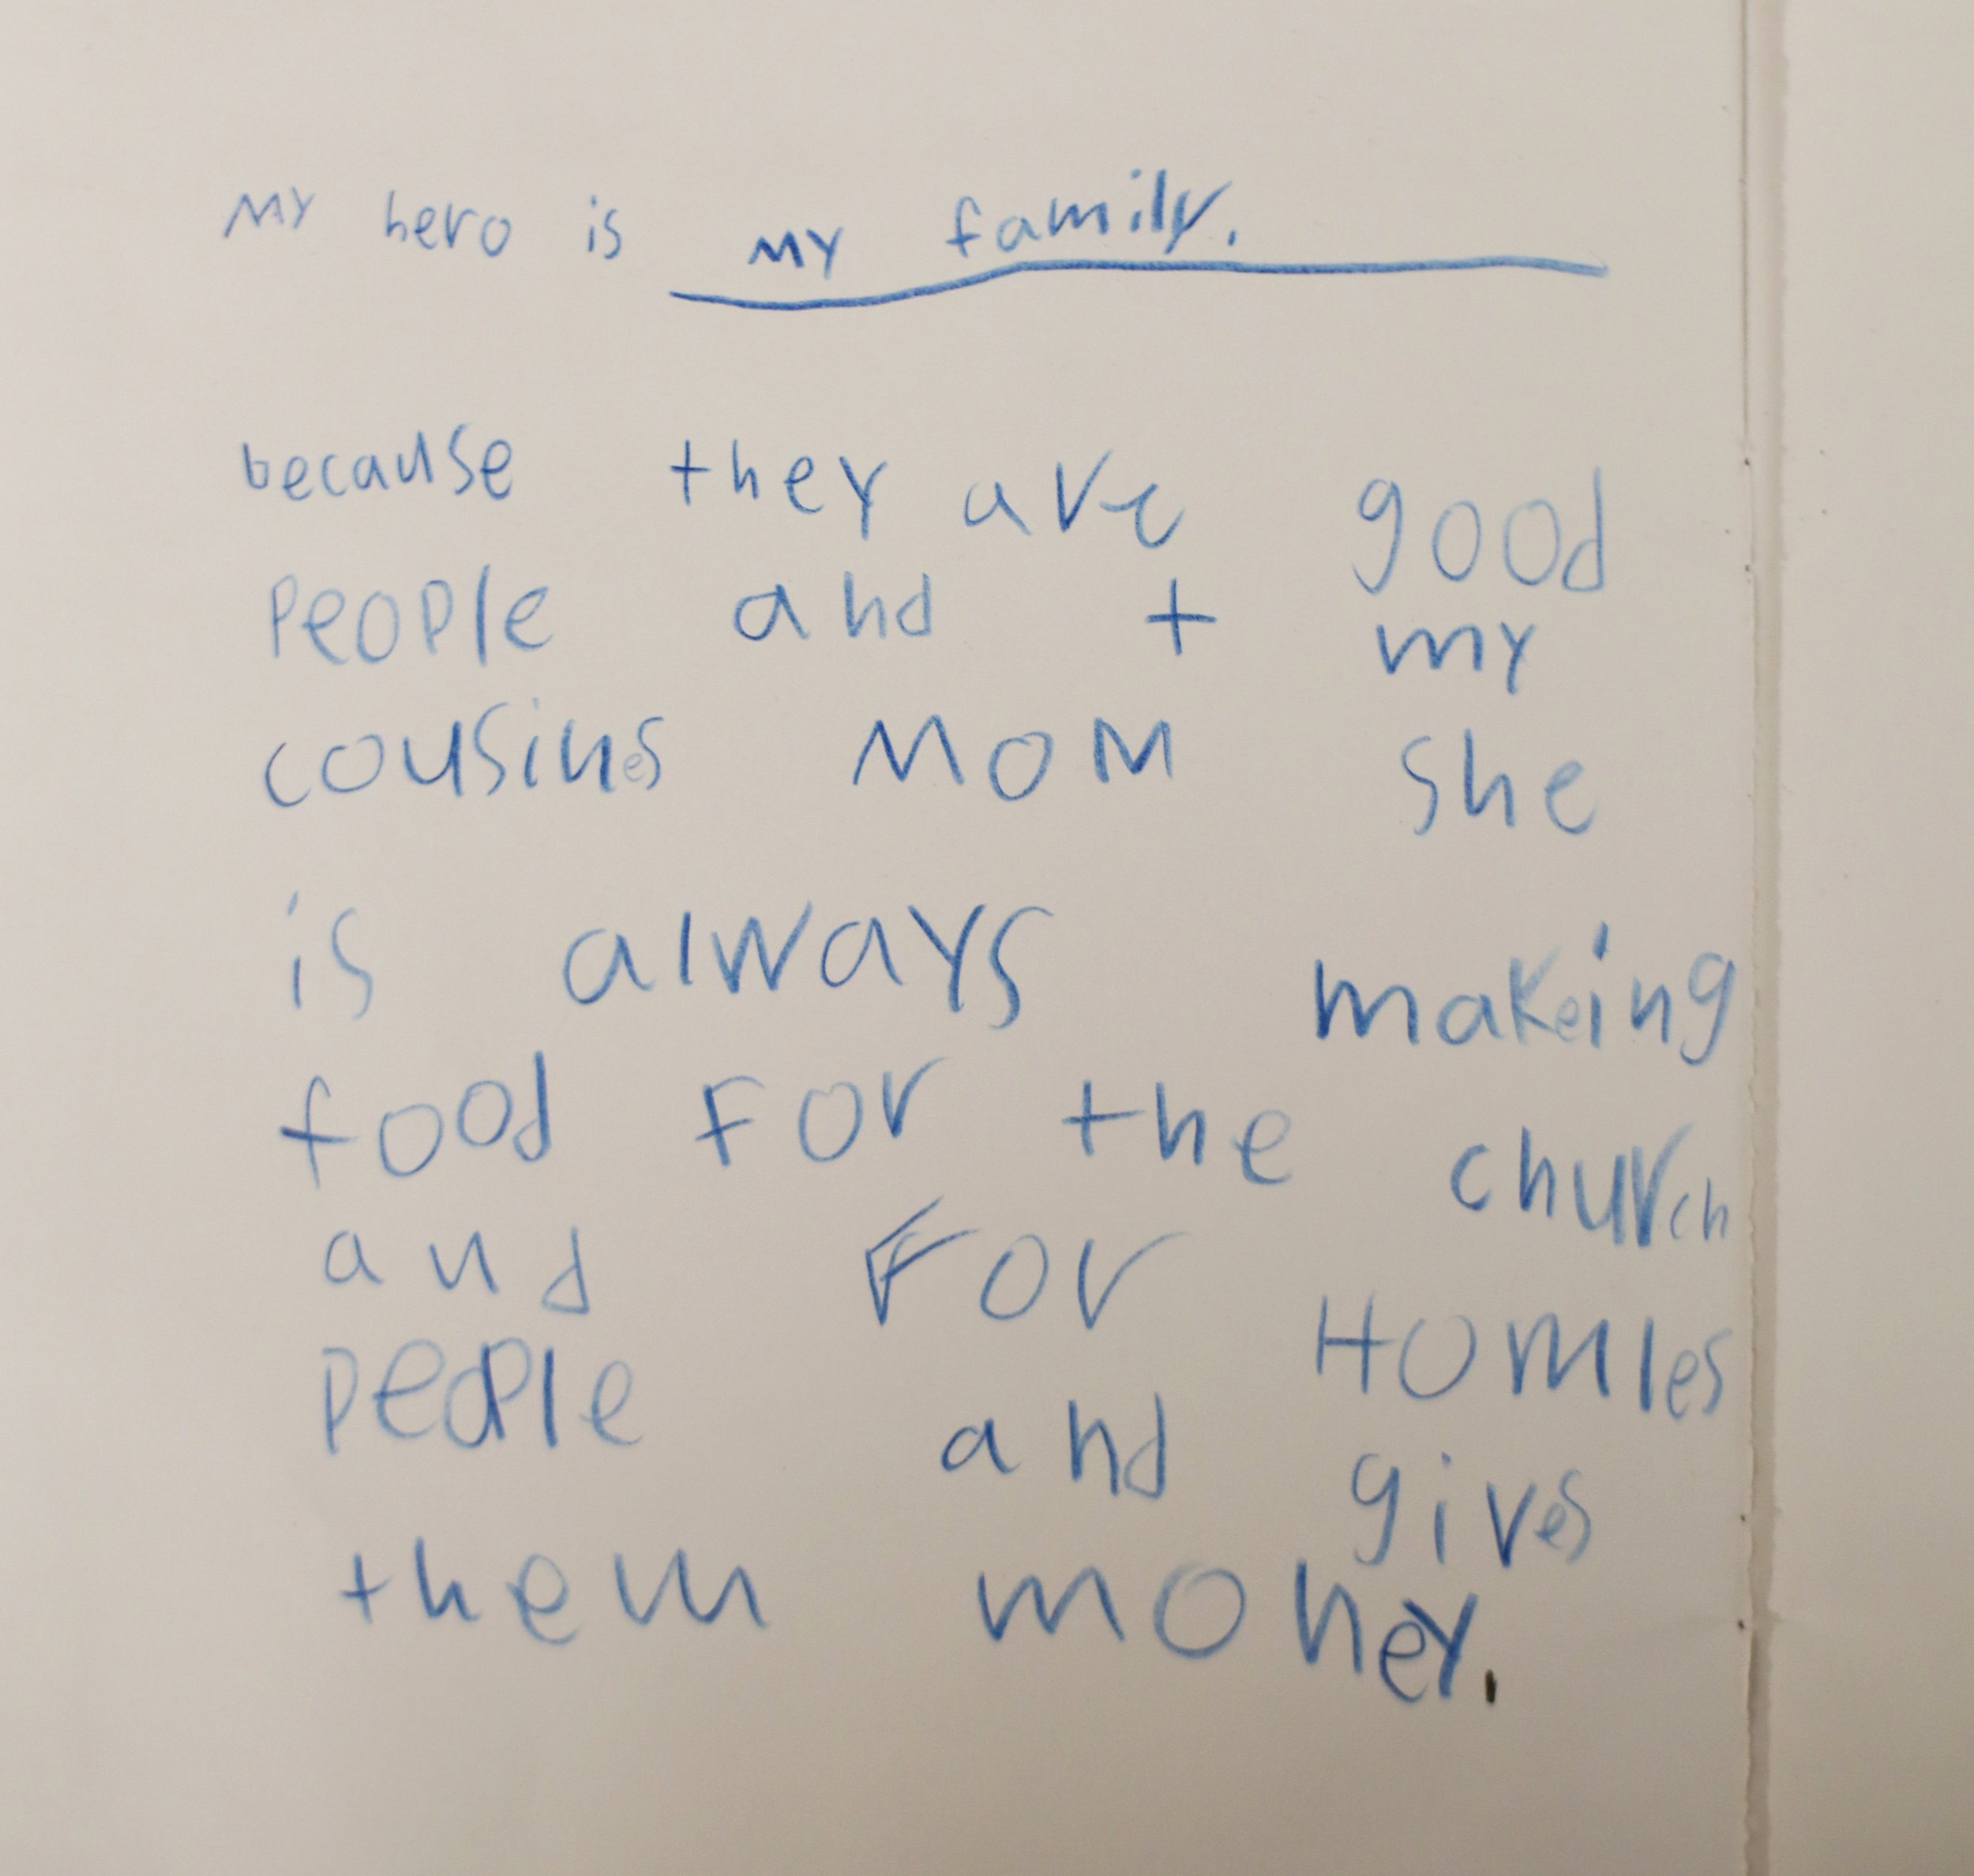 MY hero is my family.
because they are good
People and + my
cousines MOM she
is always makeing
food For the church
and For Homles
people and gives
them money.